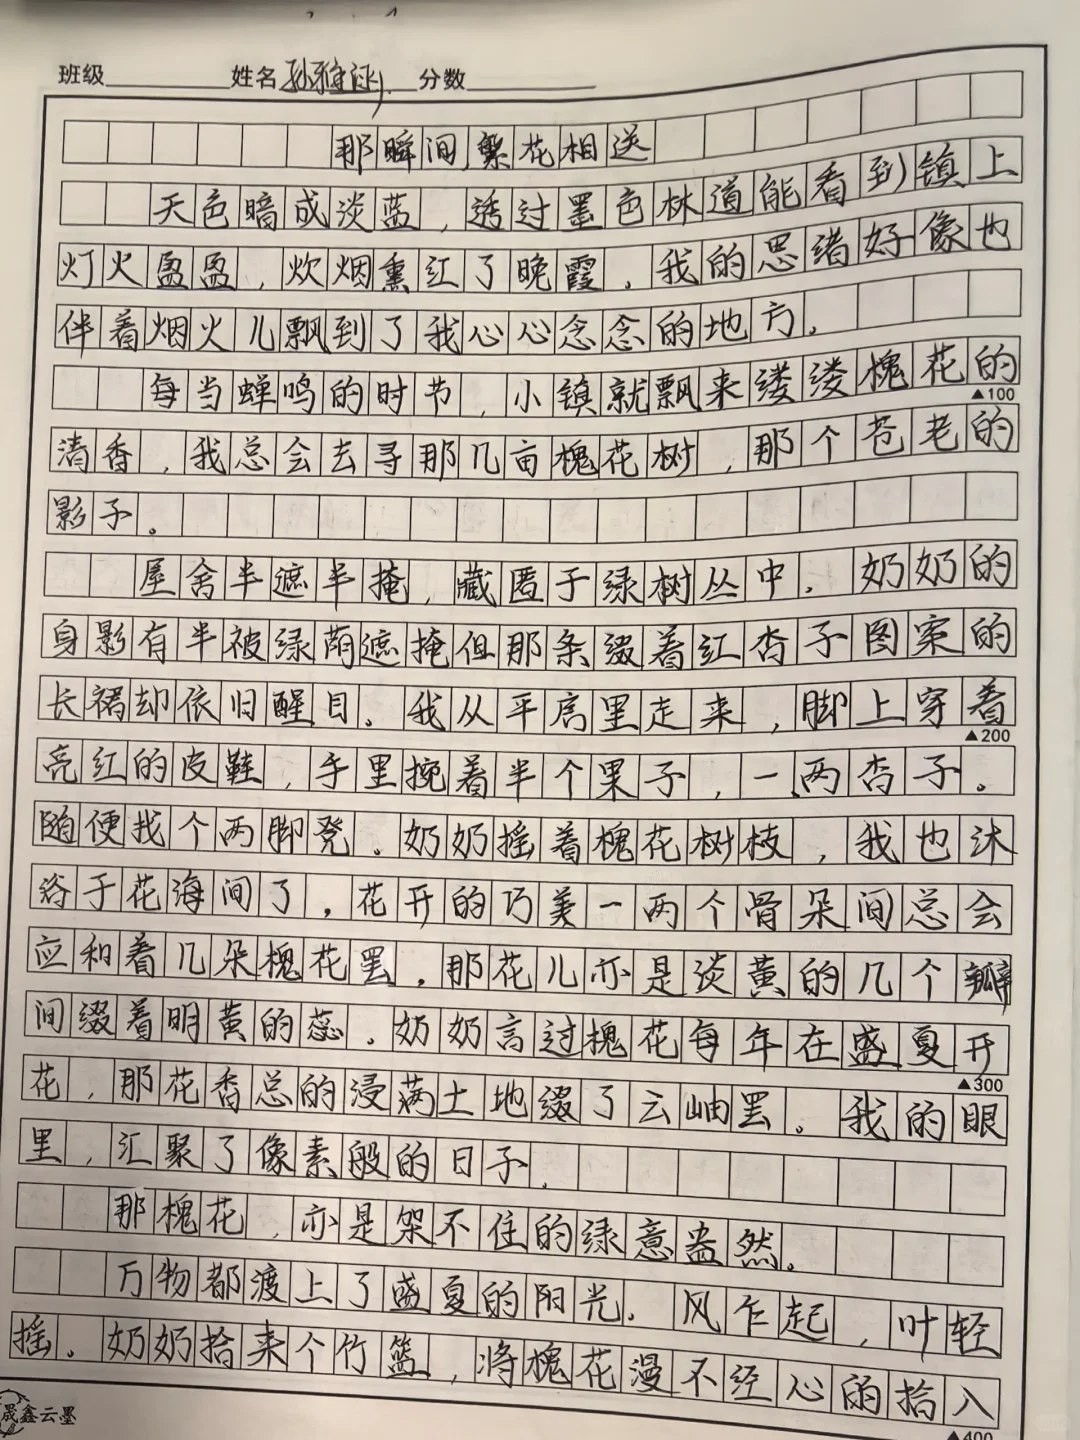 班级 姓名 分数
那瞬间,繁花相送
天色暗成淡蓝,透过墨色林道能看到镇上
灯火盈盈,炊烟熏红了晚霞。我的思绪好像也
伴着烟火儿飘到了我心心念念的地方。
每当蝉鸣的时节,小镇就飘来缕缕槐花的
▲100
清香,我总会去寻那几亩槐花树,那个苍老的
影子。
屋舍半遮半掩,藏匿于绿树丛中。奶奶的
身影有半被绿荫遮掩但那条缀着红杏子图案的
长裙却依旧醒目。我从平房里走来,脚上穿着
▲200
亮红的皮鞋,手里挽着半个果子,一、两杏子。
随便找个两脚凳。奶奶摇着槐花树枝,我也沐
浴于花海间了,花开的巧美一两个骨朵间总会
应和着几朵槐花罢。那花儿亦是淡黄的几个瓣
间缀着明黄的蕊。奶奶言过槐花每年在盛夏开
▲300
花,那花香总的浸满土地缀了云岫罢。我的眼
里,汇聚了像素般的日子。
那槐花,亦是架不住的绿意盎然。
万物都渡上了盛夏的阳光。风乍起,叶轻
摇。奶奶拾来个竹篮,将槐花漫不经心的拾入
▲400
晟鑫云墨